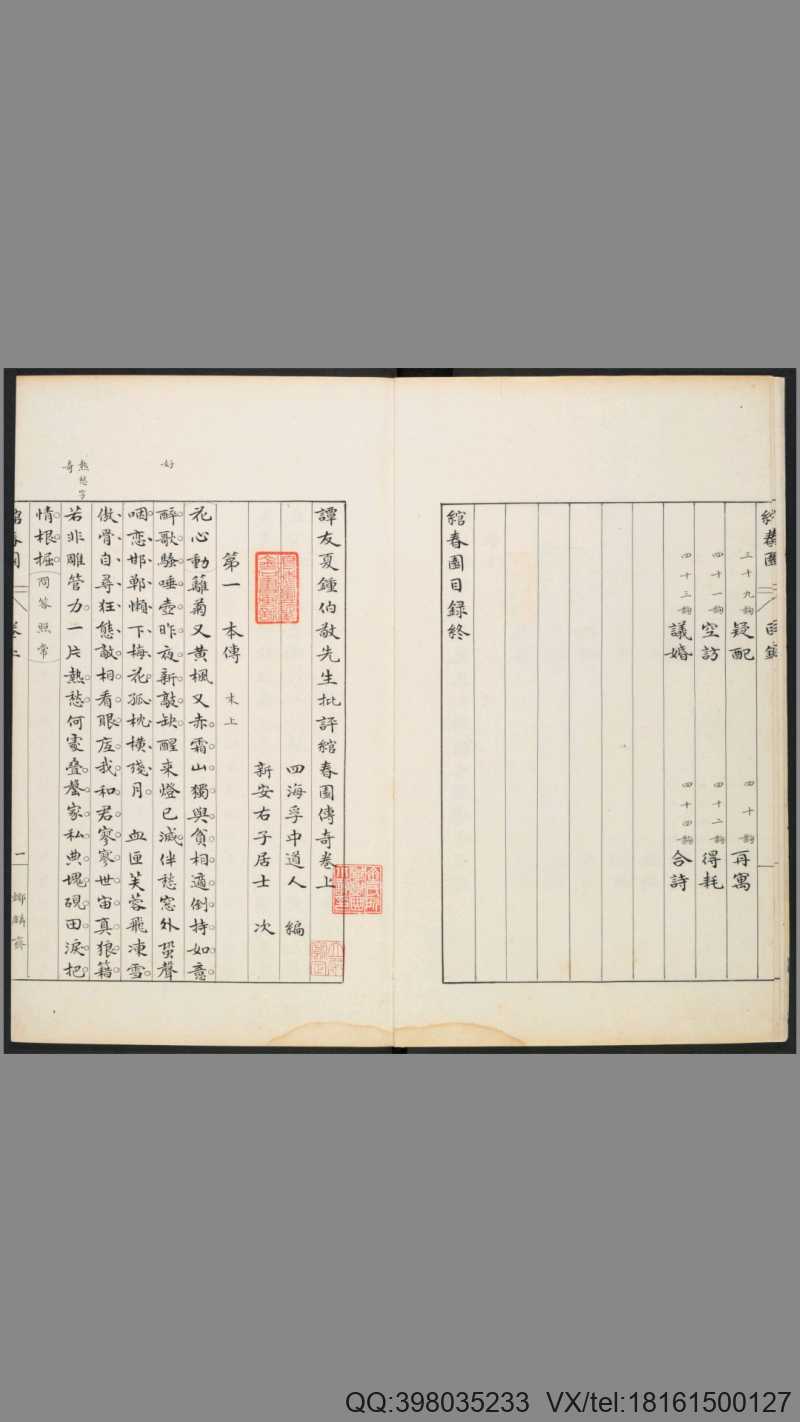 綰春園 目錄
三十九齣 疑配 四十齣 再寓
四十一齣 空訪 四十二齣 得耗
四十三齣 議婚 四十四齣 合詩
綰春園目錄終
譚友夏鍾伯敬先生批評綰春園傳奇卷上
四海孚中道人 編
新安右子居士 次
第一 本傳 末上
花心動離菊又黃楓又赤霜山獨與貧相適倒持如意
醉歌騷唾壺昨夜新敲缺醒來燈已滅伴愁窓外蛩聲
咽戀邯鄲懶下梅花孤枕橫殘月 血匣芙蓉飛凍雪
傲骨自尋狂態敵相看眼底我和君寥寥世宙真狼籍
若非雕管力一片熱愁何處疊磬家私典塊硯田淚把
情根掘問答照常
好
熱愁字
奇
綰春園 卷上 一
QQ:398035233 VX/tel:18161500127